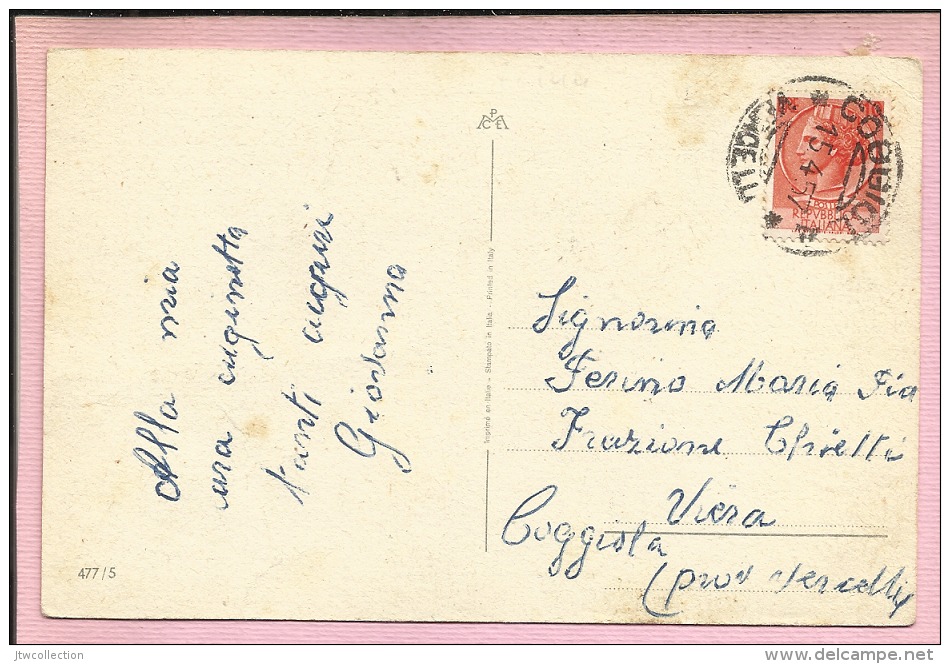 Alla mia
cara cuginetta
tanti auguri
Giovanna
477/5
Imprimé en Italie - Stampato in Italia - Printed in Italy
COGGIOLA
15.4.57
VERCELLI
POSTE
REPVBBLICA
ITALIANA
Signorina
Ferino Maria Pia
Frazione
Viera
Coggiola
(prov Vercelli)
jtwcollection
www.delcampe.net